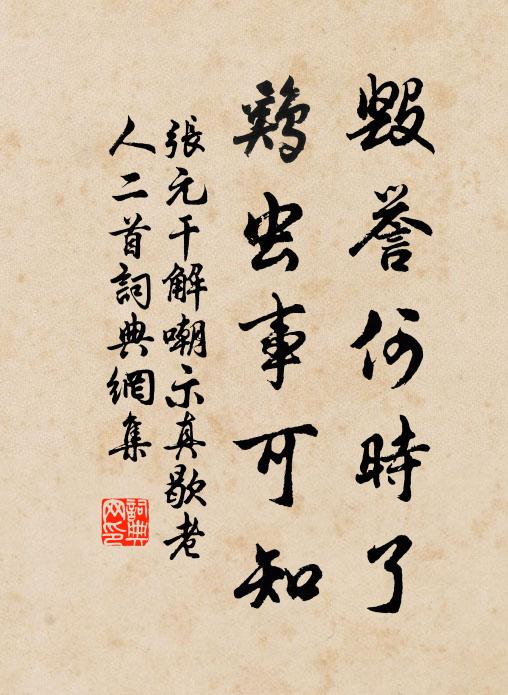 毀譽何時了
鶏虫事可知
張元干解嘲示真歇老
人二首詞典網集
詞典网印